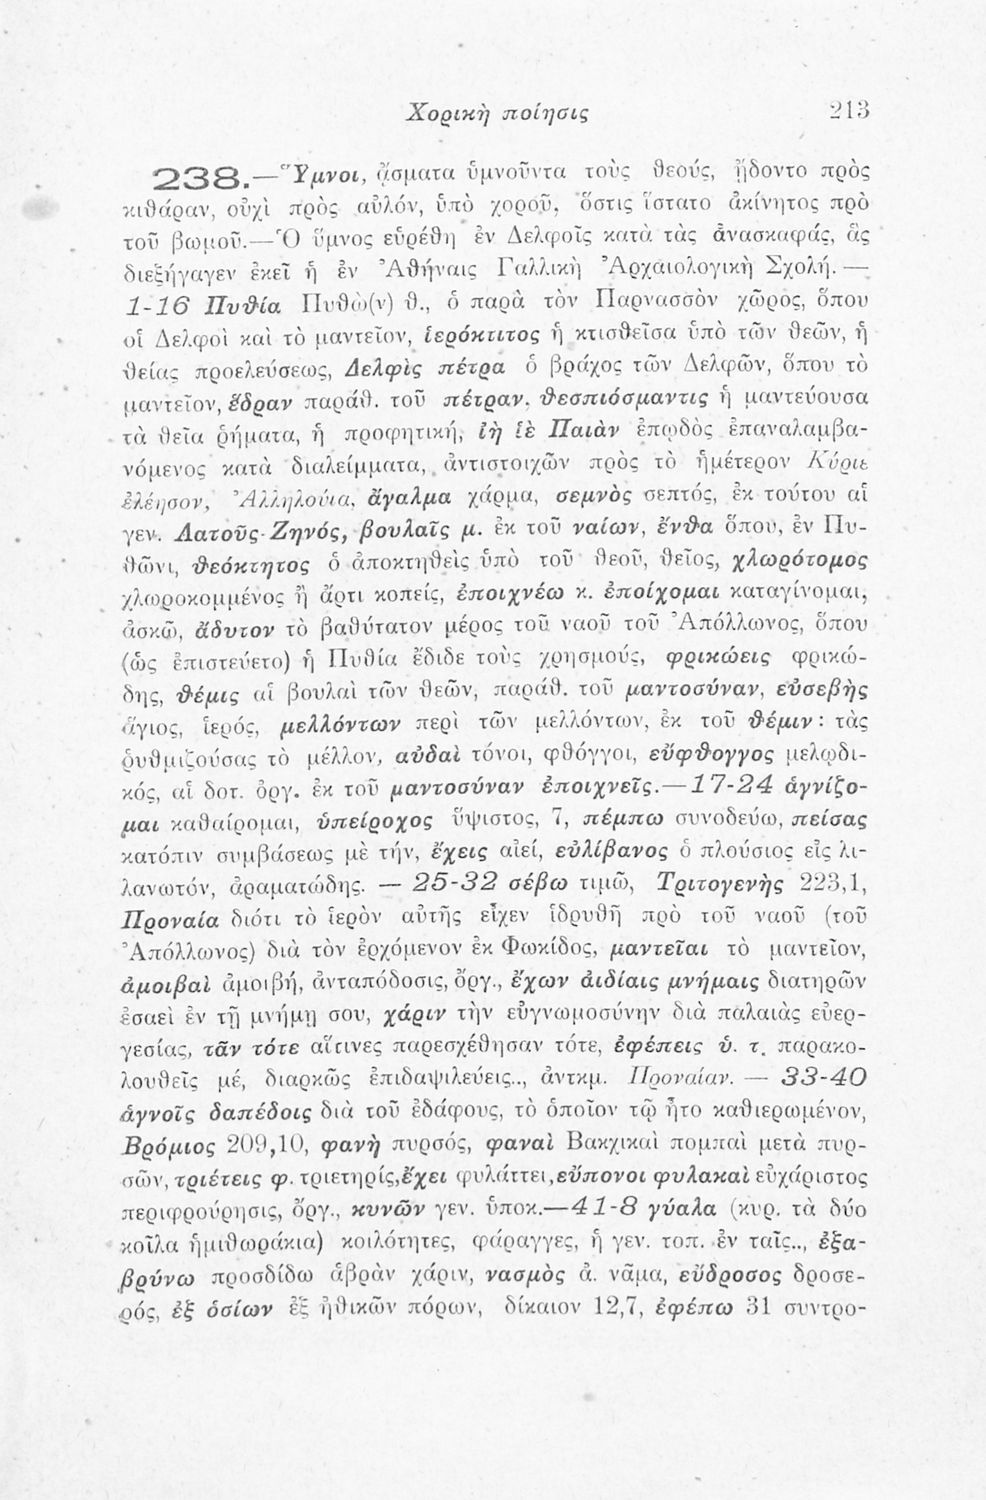 Χορικὴ ποίησις 213
238.—Ὕμνοι, ᾄσματα ὑμνοῦντα τοὺς θεούς, ᾔδοντο πρὸς
κιθάραν, οὐχὶ πρὸς αὐλόν, ὑπὸ χοροῦ, ὅστις ἵστατο ἀκίνητος πρὸ
τοῦ βωμοῦ.—Ὁ ὕμνος εὑρέθη ἐν Δελφοῖς κατὰ τὰς ἀνασκαφάς, ἃς
διεξήγαγεν ἐκεῖ ἡ ἐν Ἀθήναις Γαλλικὴ Ἀρχαιολογικὴ Σχολή.—
1-16 Πυθία Πυθὼ(ν) θ., ὁ παρὰ τὸν Παρνασσὸν χῶρος, ὅπου
οἱ Δελφοὶ καὶ τὸ μαντεῖον, ἱερόκτιτος ἡ κτισθεῖσα ὑπὸ τῶν θεῶν, ἡ
θείας προελεύσεως, Δελφὶς πέτρα ὁ βράχος τῶν Δελφῶν, ὅπου τὸ
μαντεῖον, ἕδραν παράθ. τοῦ πέτραν, θεσπιόσμαντις ἡ μαντεύουσα
τὰ θεῖα ῥήματα, ἡ προφητική, ἰὴ ἰὲ Παιὰν ἐπῳδὸς ἐπαναλαμβα-
νόμενος κατὰ διαλείμματα, ἀντιστοιχῶν πρὸς τὸ ἡμέτερον Κύριε
ἐλέησον, Ἀλληλούια, ἄγαλμα χάρμα, σεμνὸς σεπτός, ἐκ τούτου αἱ
γεν. Λατοῦς-Ζηνός, βουλαῖς μ. ἐκ τοῦ ναίων, ἔνθα ὅπου, ἐν Πυ-
θῶνι, θεόκτητος ὁ ἀποκτηθεὶς ὑπὸ τοῦ θεοῦ, θεῖος, χλωρότομος
χλωροκομμένος ἢ ἄρτι κοπείς, ἐποιχνέω κ. ἐποίχομαι καταγίνομαι,
ἀσκῶ, ἄδυτον τὸ βαθύτατον μέρος τοῦ ναοῦ τοῦ Ἀπόλλωνος, ὅπου
(ὡς ἐπιστεύετο) ἡ Πυθία ἔδιδε τοὺς χρησμούς, φρικώεις φρικώ-
δης, θέμις αἱ βουλαὶ τῶν θεῶν, παράθ. τοῦ μαντοσύναν, εὐσεβὴς
ἅγιος, ἱερός, μελλόντων περὶ τῶν μελλόντων, ἐκ τοῦ θέμιν: τὰς
ῥυθμιζούσας τὸ μέλλον, αὐδαὶ τόνοι, φθόγγοι, εὔφθογγος μελῳδι-
κός, αἱ δοτ. ὀργ. ἐκ τοῦ μαντοσύναν ἐποιχνεῖς.—17-24 ἁγνίζο-
μαι καθαίρομαι, ὑπείροχος ὕψιστος, 7, πέμπω συνοδεύω, πείσας
κατόπιν συμβάσεως μὲ τήν, ἔχεις αἰεί, εὐλίβανος ὁ πλούσιος εἰς λι-
λανωτόν, ἀραματώδης. — 25-32 σέβω τιμῶ, Τριτογενὴς 223,1,
Προναία διότι τὸ ἱερὸν αὐτῆς εἶχεν ἱδρυθῆ πρὸ τοῦ ναοῦ (τοῦ
Ἀπόλλωνος) διὰ τὸν ἐρχόμενον ἐκ Φωκίδος, μαντεῖαι τὸ μαντεῖον,
ἀμοιβαὶ ἀμοιβή, ἀνταπόδοσις, ὀργ., ἔχων ἀιδίαις μνήμαις διατηρῶν
ἐσαεὶ ἐν τῇ μνήμῃ σου, χάριν τὴν εὐγνωμοσύνην διὰ παλαιὰς εὐερ-
γεσίας, τᾶν τότε αἵτινες παρεσχέθησαν τότε, ἐφέπεις ὑ. τ. παρακο-
λουθεῖς μέ, διαρκῶς ἐπιδαψιλεύεις.., ἀντκμ. Προναίαν. — 33-40
ἁγνοῖς δαπέδοις διὰ τοῦ ἐδάφους, τὸ ὁποῖον τῷ ἦτο καθιερωμένον,
Βρόμιος 209,10, φανὴ πυρσός, φαναὶ Βακχικαὶ πομπαὶ μετὰ πυρ-
σῶν, τριέτεις φ. τριετηρίς, ἔχει φυλάττει, εὔπονοι φυλακαὶ εὐχάριστος
περιφρούρησις, ὀργ., κυνῶν γεν. ὑποκ.—41-8 γύαλα (κυρ. τὰ δύο
κοῖλα ἡμιθωράκια) κοιλότητες, φάραγγες, ἡ γεν. τοπ. ἐν ταῖς.., ἐξα-
βρύνω προσδίδω ἁβρὰν χάριν, νασμὸς ἀ. νᾶμα, εὔδροσος δροσε-
ρός, ἐξ ὁσίων ἐξ ἠθικῶν πόρων, δίκαιον 12,7, ἐφέπω 31 συντρο-